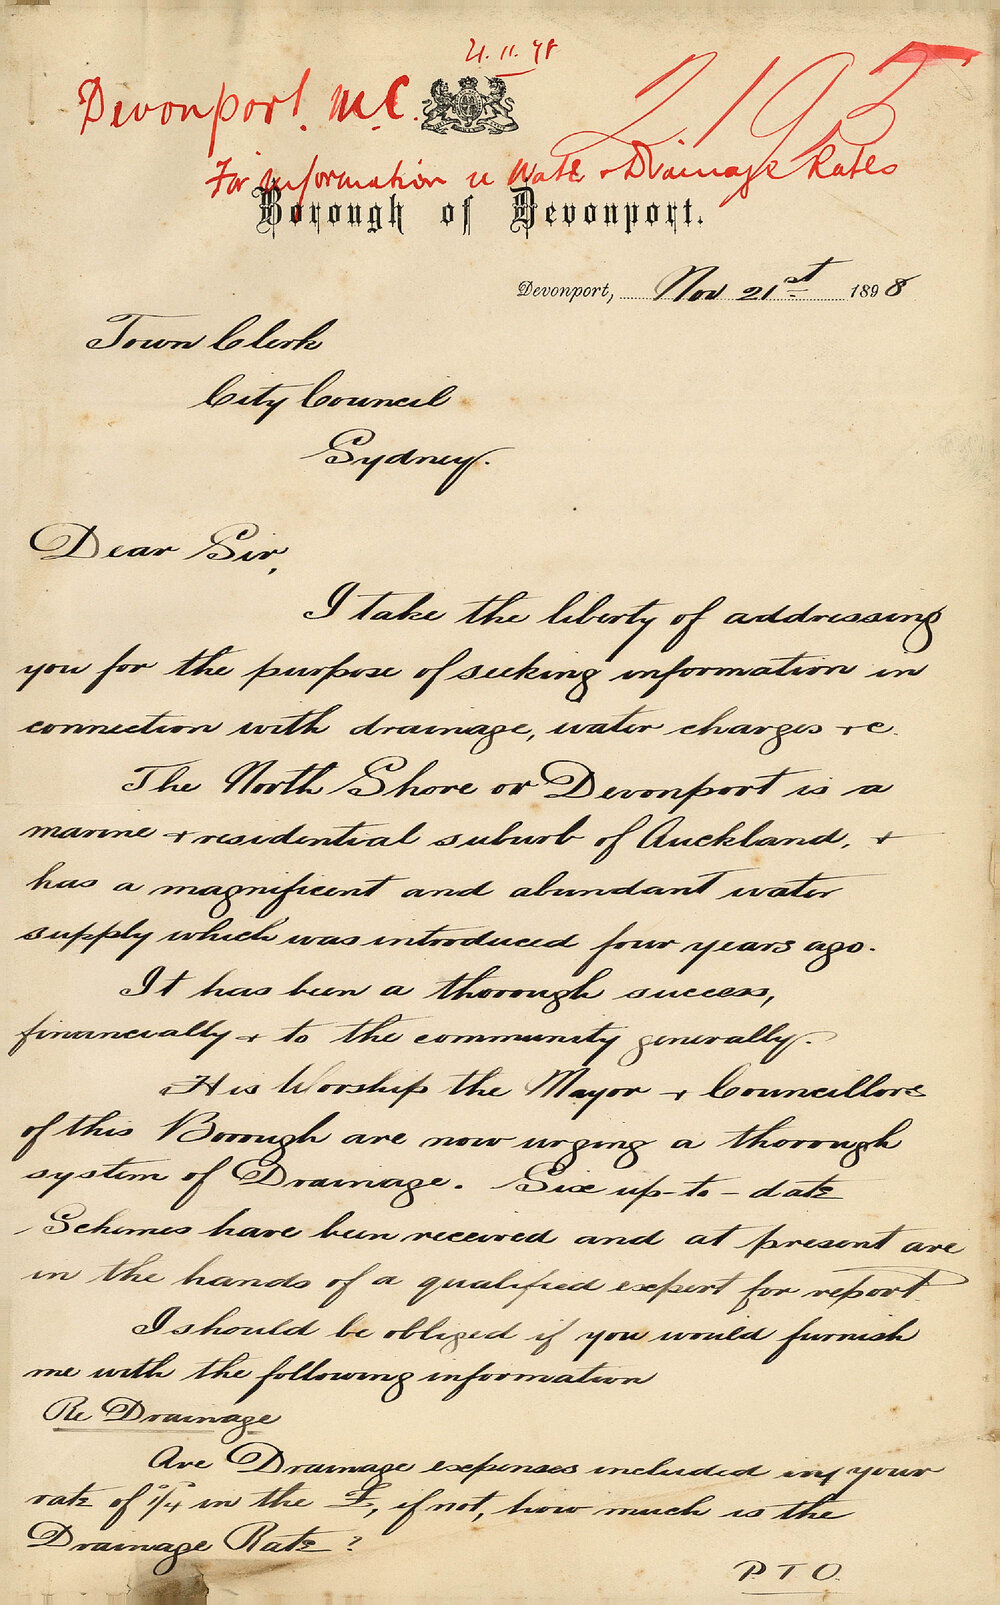 21.11.98
Devonport. M.C. 2192
For information re Wate & Drainage Rates
Borough of Devonport.
Devonport, Nov 21st 1898
Town Clerk
City Council
Sydney.
Dear Sir,
I take the liberty of addressing
you for the purpose of seeking information in
connection with drainage, water charges &c.
The North Shore or Devonport is a
marine & residential suburb of Auckland, &
has a magnificent and abundant water
supply which was introduced four years ago.
It has been a thorough success,
financially & to the community generally.
His Worship the Mayor & Councillors
of this Borough are now urging a thorough
system of Drainage. Six up-to-date
Schemes have been received and at present are
in the hands of a qualified expert for report.
I should be obliged if you would furnish
me with the following information
Re Drainage
Are Drainage expenses included in your
rate of in the £, if not, how much is the
Drainage Rate?
P T O